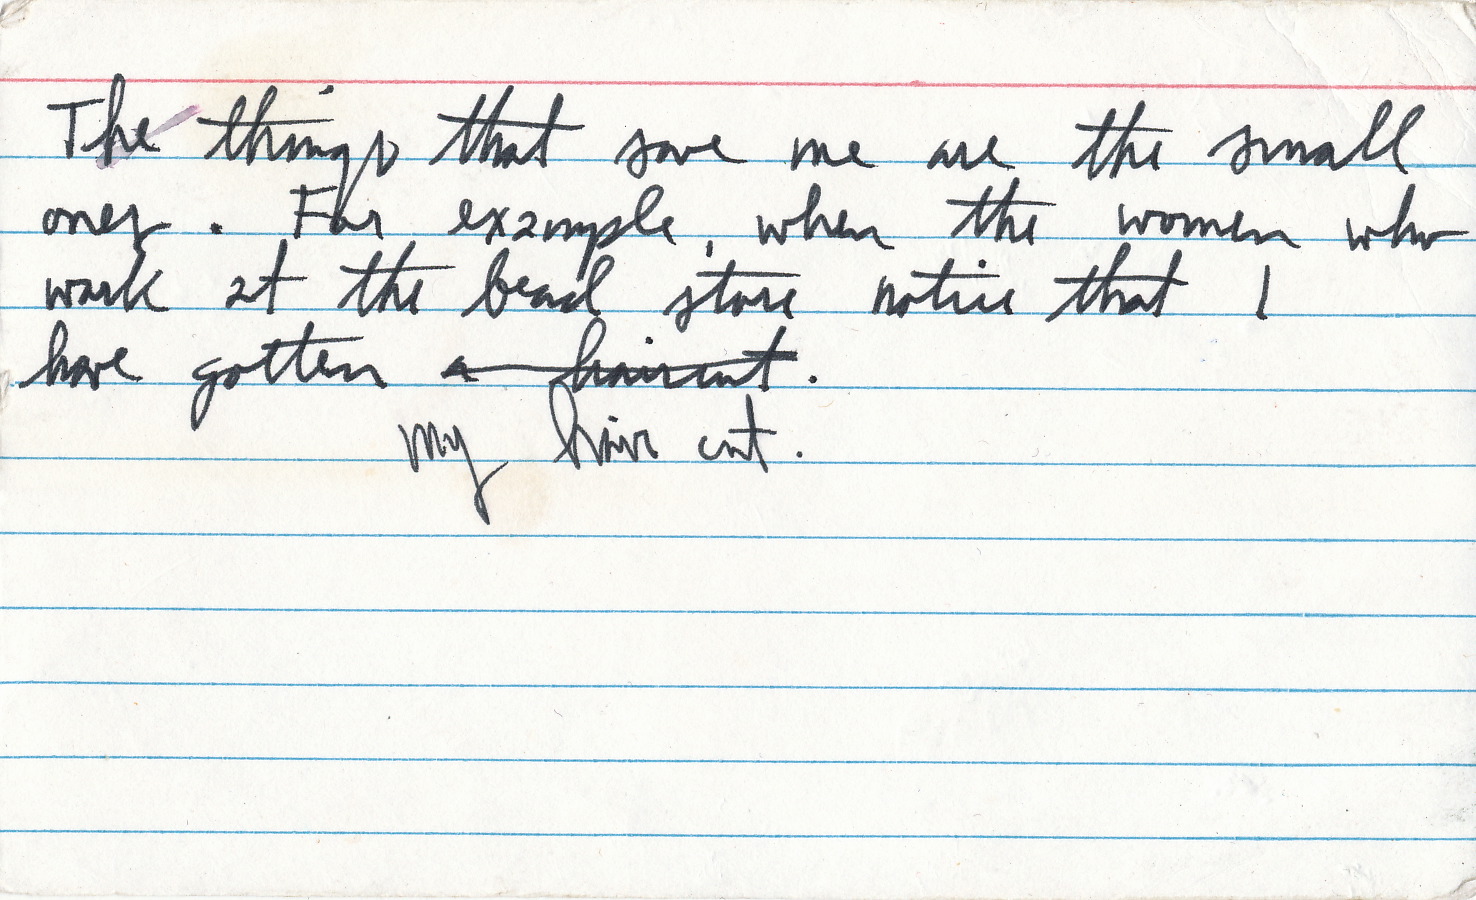 The things that save me are the small
ones. For example, when the women who
work at the bead store notice that I
have gotten a haircut.
my hair cut.